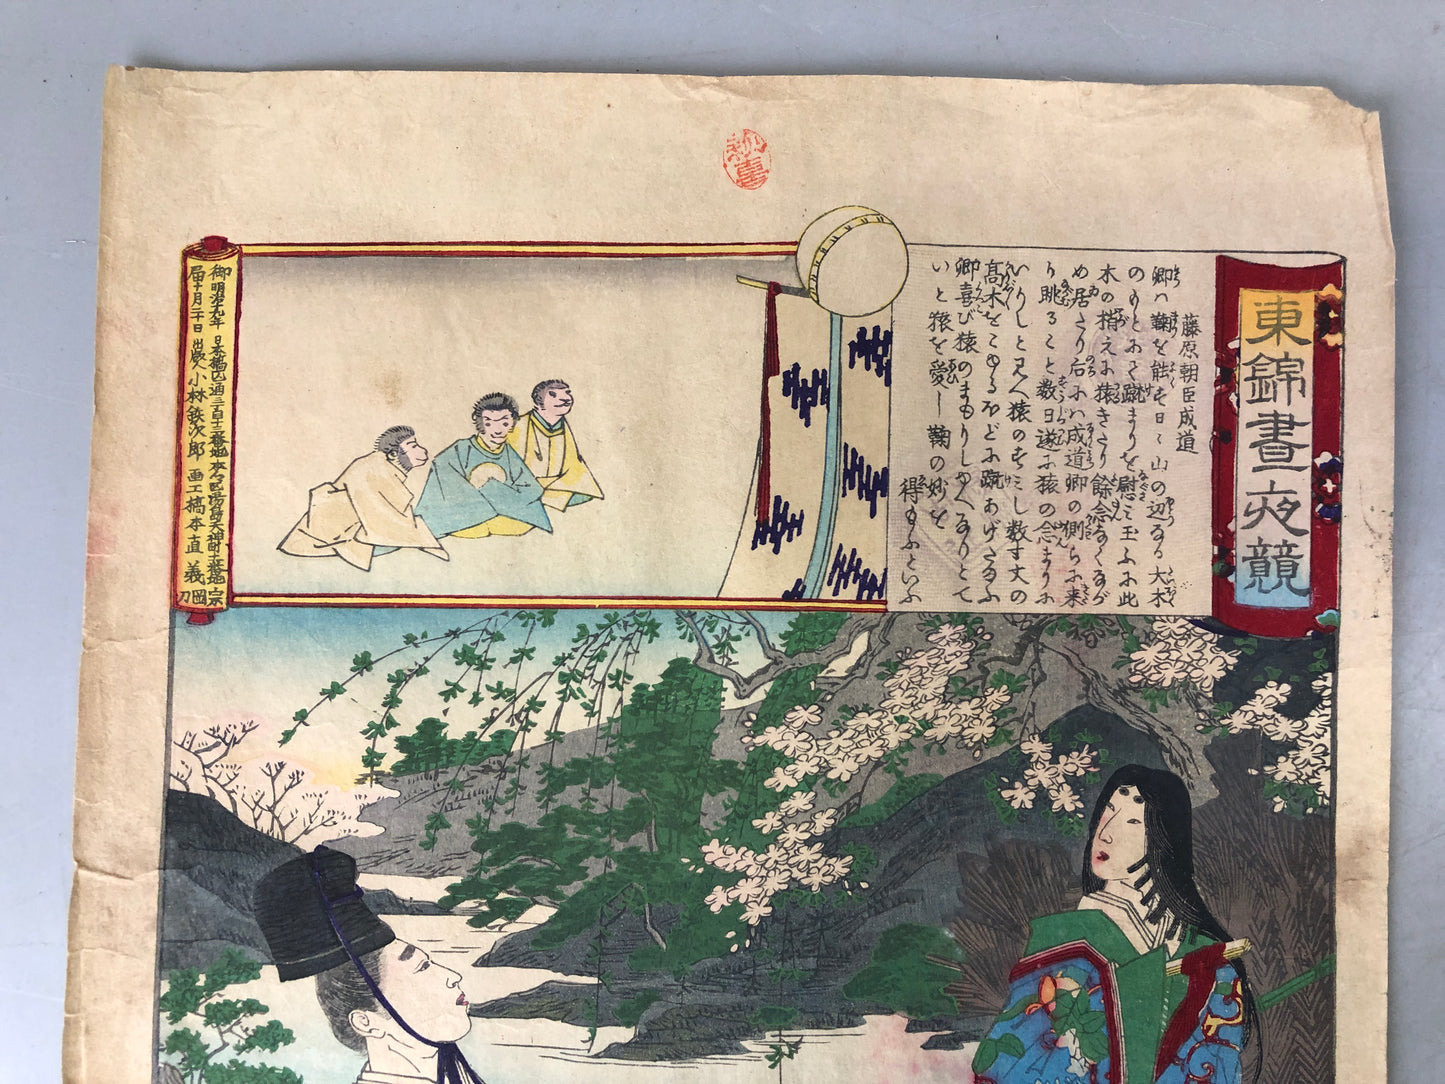 東錦晝夜競
藤原朝臣成道
卿ハ鞠を能せ日〻山の辺なる大木
のもとにて蹴まりを慰み玉ふに此
木の梢えに猿きたり餘念なくなが
め居たり后にハ成道卿の側らに来
り眺ること数日遂に猿の念まりに
いりしと見へ猿のすみし数丈の
高木をこゆるほどに蹴あげたまふ
卿喜び猿のまもりしゆへなりとて
いと猿を愛し鞠の妙を
得たもふといふ
御届
明治十九年
日本橋区通三百十三番地
出版人小林鉄次郎
画工橋本直義